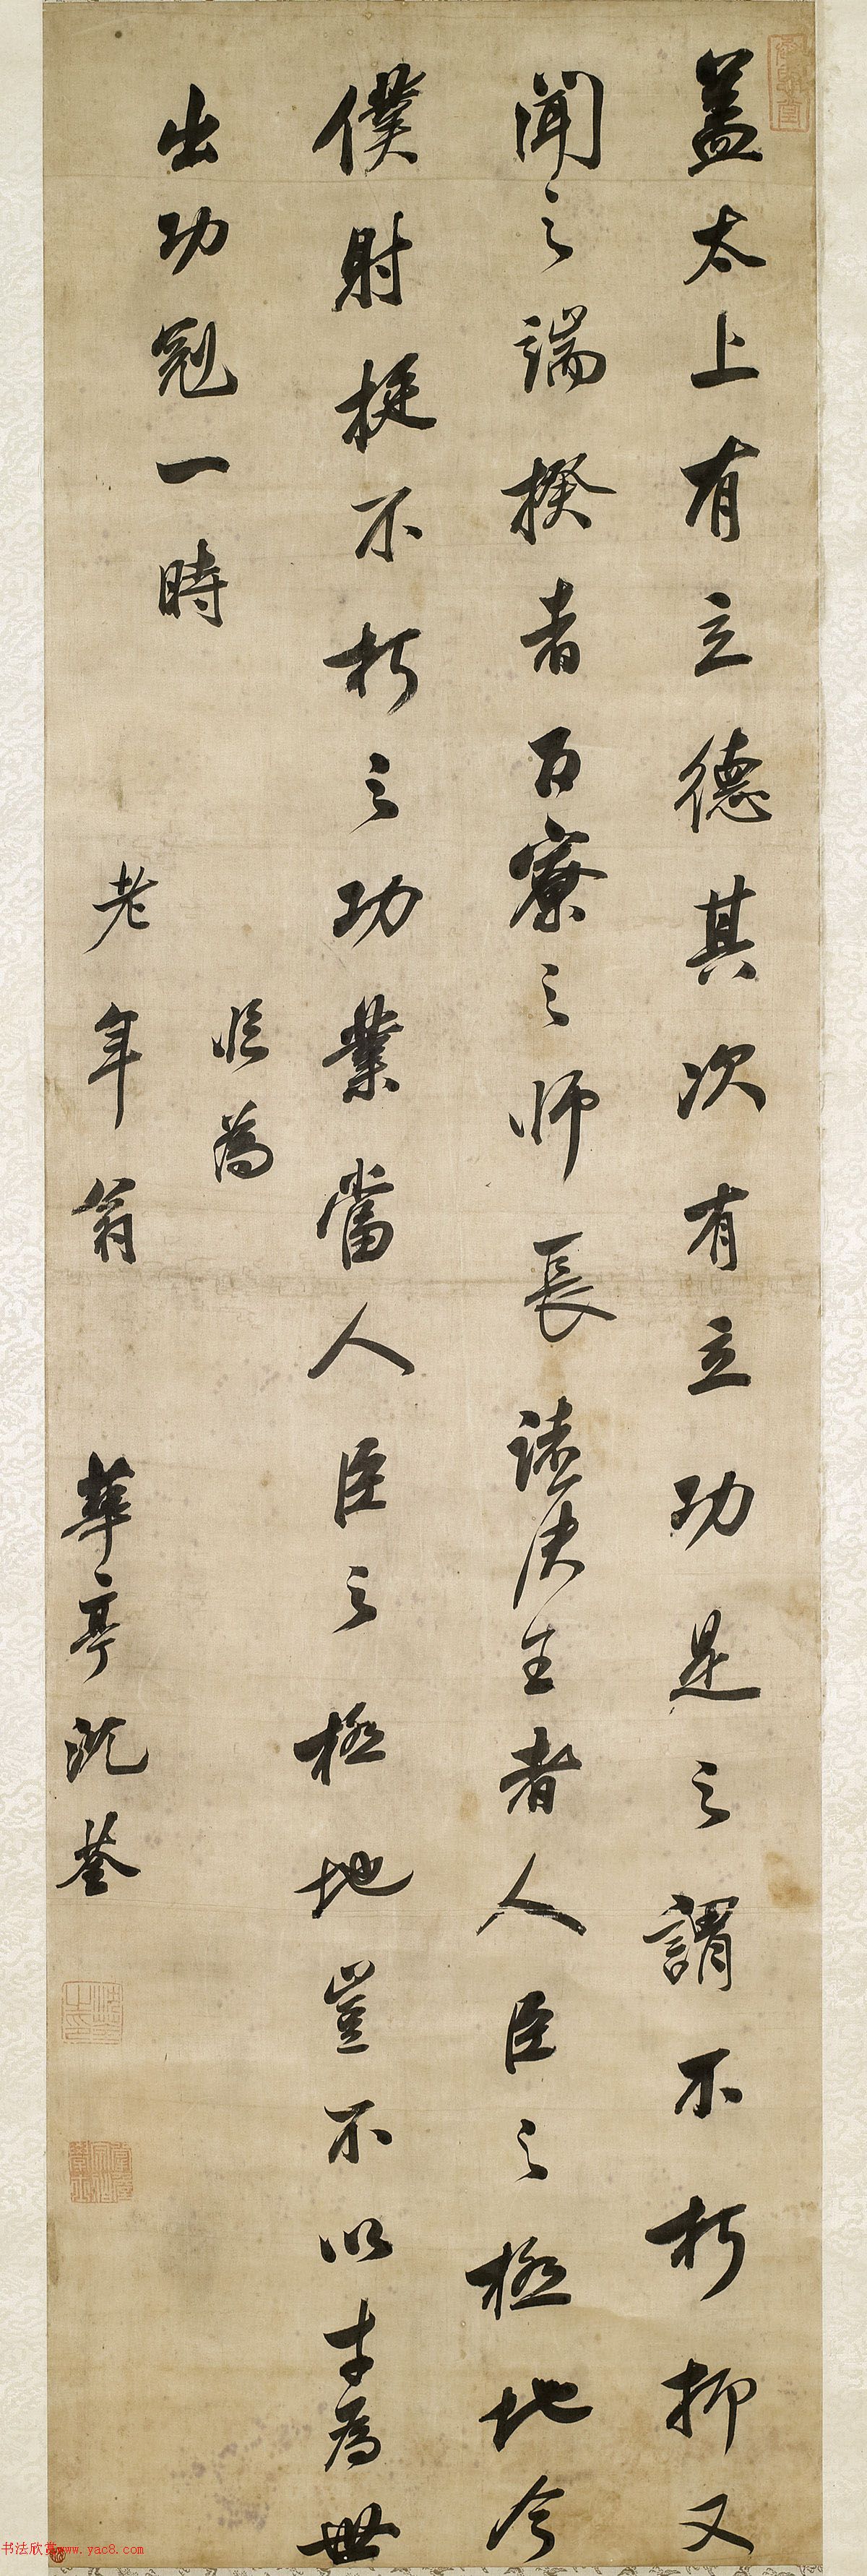 蓋太上有立德其次有立功是之謂不朽抑又
聞之端揆者百寮之師長諸侯王者人臣之極地今
僕射挺不朽之功業當人臣之極地豈不以才為世
出功冠一時
臨為
老年翁
華亭沈荃
书法欣赏www.yac8.com